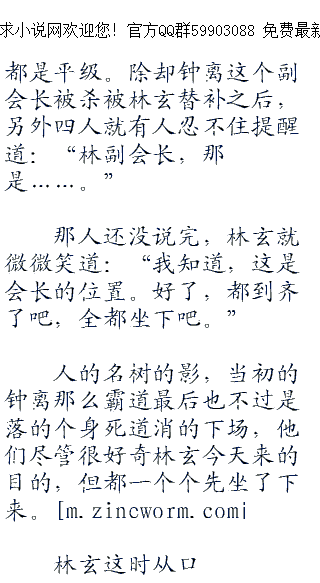 求小说网欢迎您！官方QQ群59903088 免费最新
都是平级。除却钟离这个副
会长被杀被林玄替补之后，
另外四人就有人忍不住提醒
道：“林副会长，那
是……。”
那人还没说完，林玄就
微微笑道：“我知道，这是
会长的位置。好了，都到齐
了吧，全都坐下吧。”
人的名树的影，当初的
钟离那么霸道最后也不过是
落的个身死道消的下场，他
们尽管很好奇林玄今天来的
目的，但都一个个先坐了下
来。[m.zincworm.comi
林玄这时从口